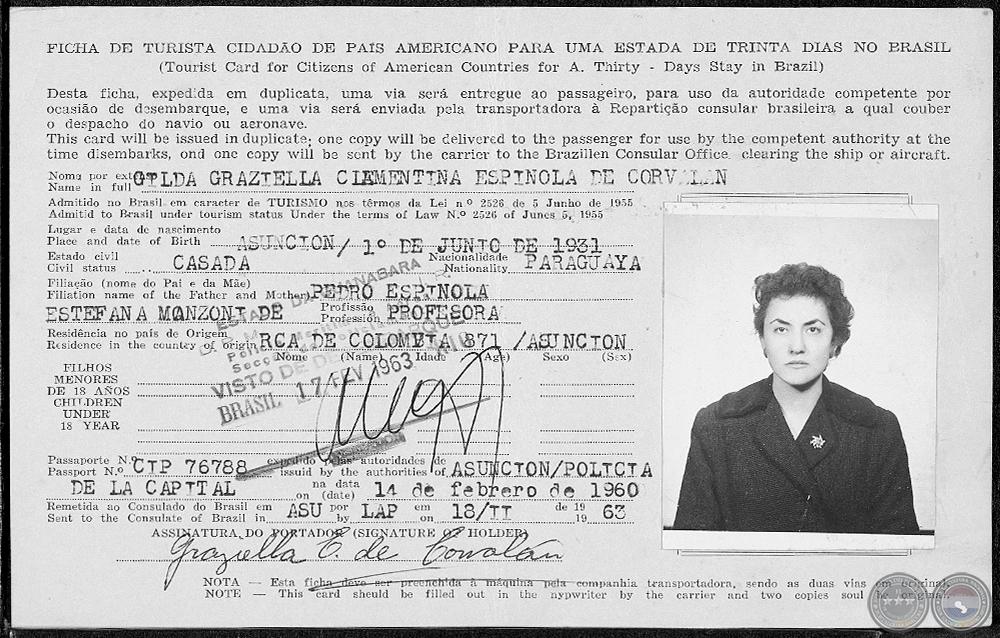 FICHA DE TURISTA CIDADÃO DE PAÍS AMERICANO PARA UMA ESTADA DE TRINTA DIAS NO BRASIL
(Tourist Card for Citizens of American Countries for A. Thirty - Days Stay in Brazil)
Desta ficha, expedida em duplicata, uma via será entregue ao passageiro, para uso da autoridade competente por
ocasião de desembarque, e uma via será enviada pela transportadora à Repartição consular brasileira a qual couber
o despacho do navio ou aeronave.
This card will be issued in duplicate; one copy will be delivered to the passenger for use by the competent authority at the
time disembarks, ond one copy will be sent by the carrier to the Brazillen Consular Office, clearing the ship or aircraft.
Nome por ext
Name in full GILDA GRAZIELLA CLEMENTINA ESPINOLA DE CORVALAN
Admitido no Brasil em caracter de TURISMO nos têrmos da Lei n.º 2526 de 5 Junho de 1955
Admitid to Brasil under tourism status Under the terms of Law N.º 2526 of Junes 5, 1955
Lugar e data de nascimento
Place and date of Birth ASUNCION / 1º DE JUNIO DE 1931
Estado civil Nacionalidade
Civil status CASADA Nationality PARAGUAYA
Filiação (nome do Pai e da Mãe)
Filiation name of the Father and Mother) PEDRO ESPINOLA
ESTEFANA MONZONI DE Profissão
Profession PROFESORA
Residência no país de Origem
Residence in the country of origin RCA DE COLOMBIA 871 / ASUNCION
Nome (Name) Idade (Age) Sexo (Sex)
FILHOS
MENORES
DE 18 AÑOS
CHILDREN
UNDER
18 YEAR
ESTADO DA GUANABARA
VISTO DE
BRASIL 17 FEV 1963
Passaporte N.º expedido pelas autoridades de
Passport N.º CIP 76788 issuid by the authorities of ASUNCION/POLICIA
DE LA CAPITAL na data
on (date) 14 de febrero de 1960
Remetida ao Consulado do Brasil em por em de 19
Sent to the Consulate of Brazil in ASU by LAP on 18/II 19 63
ASSINATURA DO PORTADOR (SIGNATURE OF HOLDER)
Graziella E. de Corvalán
NOTA — Esta ficha deve ser preenchida à máquina pela companhia transportadora, sendo as duas vias em original.
NOTE — This card should be filled out in the nypwriter by the carrier and two copies soul be original.